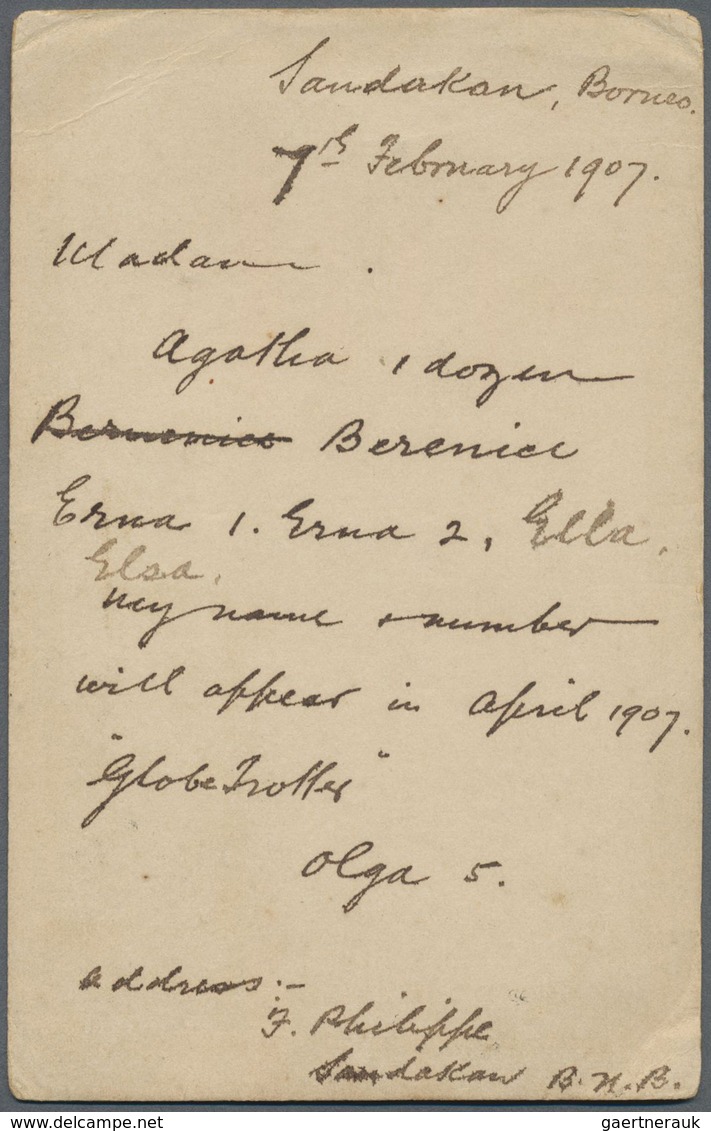 Sandakan, Borneo.
7th February 1907.
Madam.
Agatha 1 dozen
Bernenice Berenice
Erna 1. Erna 2, Ella,
Elsa,
my name & number
will appear in April 1907.
"Globe Trotter"
Olga 5.
address:-
F. Philippe
Sandakan B.N.B.
www.delcampe.net
gaertnerauk